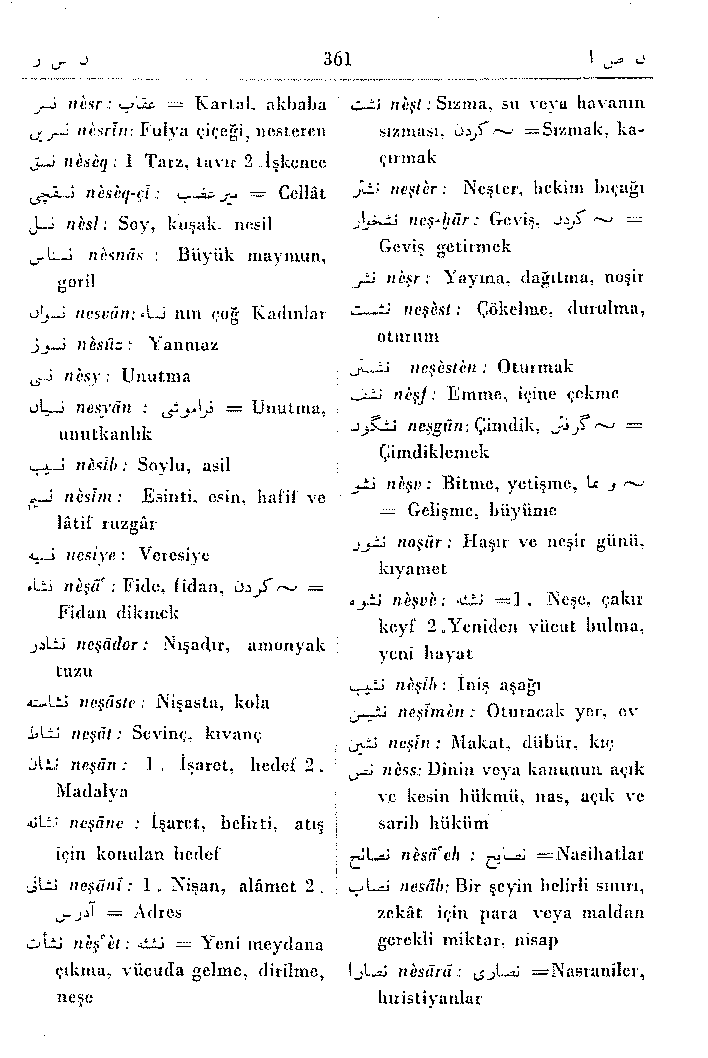 ن س ر 361 ن ص ا
نسر nèsr : عقاب = Kartal, akbaba
نسرین nèsrîn: Fulya çiçeği, nesteren
نسق nèsèq : 1 Tarz, tavır 2 .İşkence
نسقچی nèsèq-çî : میر غضب = Cellât
نسل nèsl : Soy, kuşak, nesil
نسناس nèsnâs : Büyük maymun,
goril
نسوان nesvân; نساء nın çoğ Kadınlar
نسوز nèsûz : Yanmaz
نسی nèsy : Unutma
نسیان nesyân : فراموشی = Unutma,
unutkanlık
نسیب nèsîb : Soylu, asil
نسیم nèsîm : Esinti, esin, hafif ve
lâtif ruzgâr
نسیه nesiye : Veresiye
نشاء nèşâ' : Fide, fidan, کردن ~ =
Fidan dikmek
نشادر neşâdor : Nışadır, amonyak
tuzu
نشاسته neşâste : Nişasta, kola
نشاط neşât : Sevinç, kıvanç
نشان neşân : 1 . İşaret, hedef 2 .
Madalya
نشانه neşâne : İşaret, belirti, atış
için konulan hedef
نشانی neşânî : 1 . Nişan, alâmet 2 .
آدرس = Adres
نشأت nèş'èt : نشئه = Yeni meydana
çıkma, vücuda gelme, dirilme,
neşe
نشت nèşt : Sızma, su veya havanın
sızması, کردن ~ =Sızmak, ka-
çırmak
نشتر neştèr : Neşter, hekim bıçağı
نشخوار neş-hâr : Geviş, کردن ~ =
Geviş getirmek
نشر nèşr : Yayma, dağıtma, neşir
نشست neşèst : Çökelme, durulma,
oturum
نشستن neşèstèn : Oturmak
نشف nèşf : Emme, içine çekme
نشگون neşgûn: Çimdik, گرفتن ~ =
Çimdiklemek
نشو nèşv : Bitme, yetişme, و نما ~
= Gelişme, büyüme
نشور noşûr : Haşır ve neşir günü,
kıyamet
نشوه nèşvè : نشئه =1 . Neşe, çakır
keyf 2 .Yeniden vücut bulma,
yeni hayat
نشیب nèşîb : İniş aşağı
نشیمن neşîmèn : Oturacak yer, ev
نشین neşîn : Makat, dübür, kıç
نص nèss: Dinin veya kanunun açık
ve kesin hükmü, nas, açık ve
sarih hüküm
نصائح nèsâ'eh : نصایح =Nasihatlar
نصاب nesâb: Bir şeyin belirli sınırı,
zekât için para veya maldan
gerekli miktar, nisap
نصارا nèsârâ : نصاری =Nasraniler,
hıristiyanlar